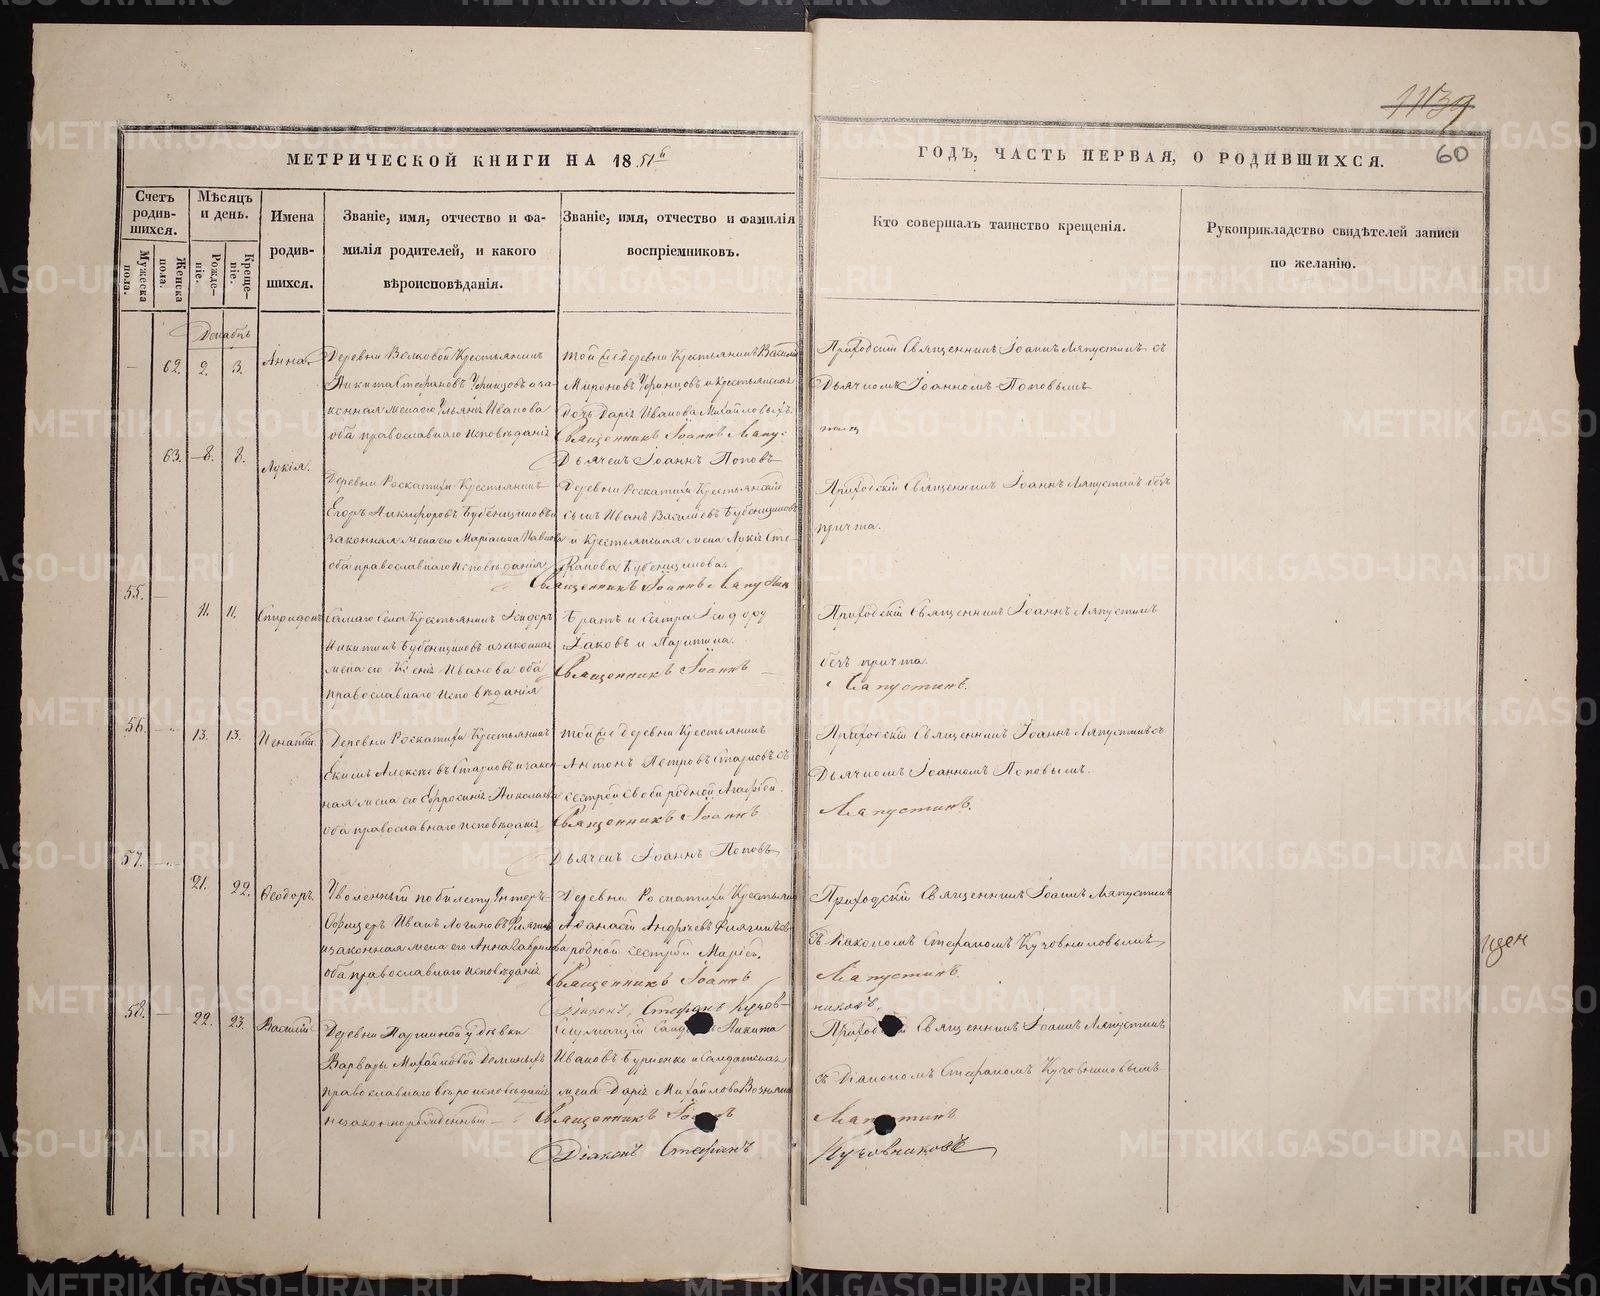 1139
60
МЕТРИЧЕСКОЙ КНИГИ НА 1851й
ГОДЪ, ЧАСТЬ ПЕРВАЯ, О РОДИВШИХСЯ.
Счетъ родив-шихся.
Мужеска пола.
Женска пола.
Мѣсяцъ и день.
Рожде-ніе.
Креще-ніе.
Имена
родив-
шихся.
Званіе, имя, отчество и фа-
милія родителей, и какого
вѣроисповѣданія.
Званіе, имя, отчество и фамилія
воспріемниковъ.
Кто совершалъ таинство крещенія.
Рукоприкладство свидѣтелей записи
по желанію.
Декабрь
62. 2. 3. Анна.
Деревни Волковой Крестьянинъ
Никита Стефановъ Уфинцовъ и за-
конная жена его Ульяна Иванова
оба православнаго исповѣданія
той же деревни Крестьянинъ Василій
Мироновъ Уфинцовъ и крестьянская
дочь Дарья Иванова Михайловыхъ.
Священникъ Іоаннъ Лапу-
Дьячекъ Іоаннъ Поповъ
Приходскій Священникъ Іоаннъ Ляпустинъ съ
Дьячкомъ Іоанномъ Поповымъ
63. 8. 8. Лукія.
Деревни Роскатихи Крестьянинъ
Егоръ Никифоровъ Бубенщиковъ и
законная жена его Маріанна Павлова
оба православнаго исповѣданія
Деревни Роскатихи Крестьянскій
сынъ Иванъ Васильевъ Бубенщиковъ
и Крестьянская жена Лукія Сте-
фанова Бубенщикова.
Священникъ Іоаннъ Лапустин
Приходскій Священникъ Іоаннъ Ляпустинъ безъ
причта.
55. 11. 11. Спиридонъ
самаго села Крестьянинъ Исидоръ
Никитинъ Бубенщиковъ и законная
жена его Ксенія Иванова оба
православнаго исповѣданія
Братъ и сестра Исидору
Іаковъ и Параскева.
Священникъ Іоаннъ
Приходскій Священникъ Іоаннъ Ляпустинъ
безъ причта.
Лапустинъ.
56. 13. 13. Игнатій
Деревни Роскатихи Крестьянинъ
Екимъ Алексѣевъ Старковъ и закон-
ная жена его Ефросинія Николаева
оба православнаго исповѣданія
той же деревни Крестьянинъ
Антонъ Петровъ Старковъ съ
сестрой своей родной Агафіей.
Священникъ Іоаннъ
Дьячекъ Іоаннъ Поповъ
Приходскій Священникъ Іоаннъ Ляпустинъ съ
Дьячкомъ Іоанномъ Поповымъ.
Лапустинъ.
57. 21. 22. Ѳеодоръ.
Уволенный по билету Унтеръ-
Офицеръ Иванъ Логиновъ
и законная жена его Анна Гаврилова
оба православнаго исповѣданія
Деревни Роскатихи Крестьянинъ
Аѳанасій Андреевъ
родной сестрой Маріей.
Священникъ Іоаннъ
Діаконъ, Стефанъ Кучов-
Приходскій Священникъ Іоаннъ Ляпустинъ
съ Діакономъ Стефаномъ Кучовниковымъ
Лапустинъ.
никовъ.
58. 22. 23. Василій
Деревни у дѣвки
Варвары Михайловой Деминыхъ
православнаго вѣроисповѣданія
незаконнорожденный
Служащій Никита
Ивановъ и Салдатская
жена Дарія Михайлова
Священникъ
Діаконъ Стефанъ
Священникъ Іоаннъ Ляпустинъ
съ Діакономъ Стефаномъ Кучовниковымъ
Лапустинъ
Кучовниковъ
METRIKI.GASO-URAL.RU